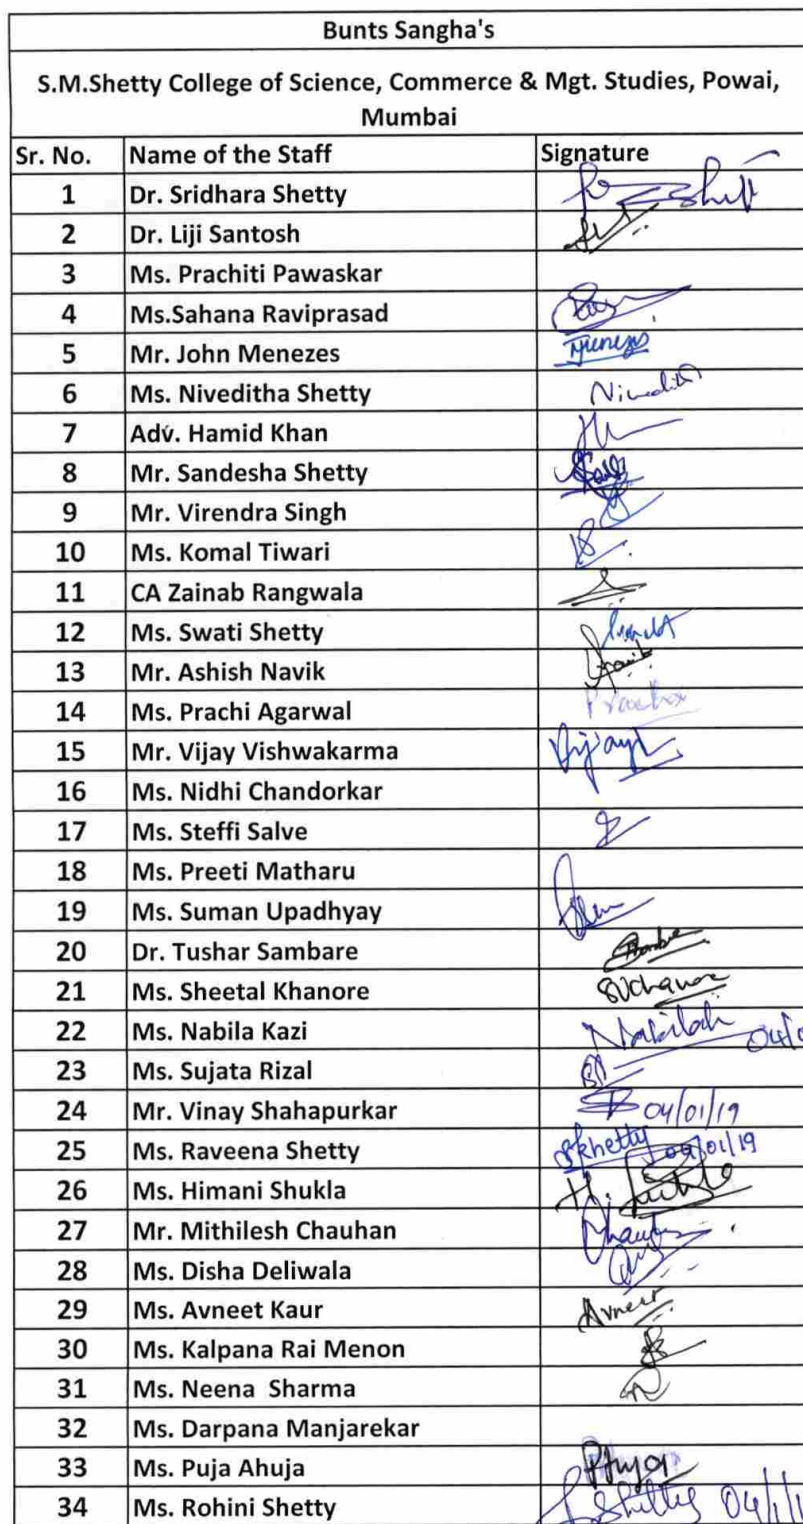 Bunts Sangha's
S.M.Shetty College of Science, Commerce & Mgt. Studies, Powai,
Mumbai
Sr. No. Name of the Staff Signature
1 Dr. Sridhara Shetty
2 Dr. Liji Santosh
3 Ms. Prachiti Pawaskar
4 Ms.Sahana Raviprasad
5 Mr. John Menezes
6 Ms. Niveditha Shetty
7 Adv. Hamid Khan
8 Mr. Sandesha Shetty
9 Mr. Virendra Singh
10 Ms. Komal Tiwari
11 CA Zainab Rangwala
12 Ms. Swati Shetty
13 Mr. Ashish Navik
14 Ms. Prachi Agarwal
15 Mr. Vijay Vishwakarma
16 Ms. Nidhi Chandorkar
17 Ms. Steffi Salve
18 Ms. Preeti Matharu
19 Ms. Suman Upadhyay
20 Dr. Tushar Sambare
21 Ms. Sheetal Khanore
22 Ms. Nabila Kazi
23 Ms. Sujata Rizal
24 Mr. Vinay Shahapurkar 04/01/19
25 Ms. Raveena Shetty 04/01/19
26 Ms. Himani Shukla
27 Mr. Mithilesh Chauhan
28 Ms. Disha Deliwala
29 Ms. Avneet Kaur Avneet
30 Ms. Kalpana Rai Menon
31 Ms. Neena Sharma
32 Ms. Darpana Manjarekar
33 Ms. Puja Ahuja
34 Ms. Rohini Shetty